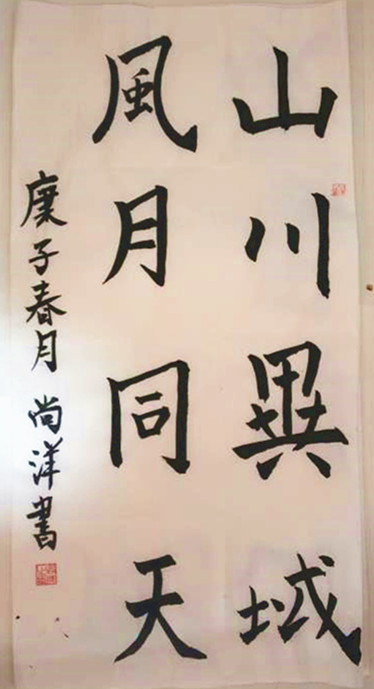 山川異域
風月同天
庚子春月 尚洋書